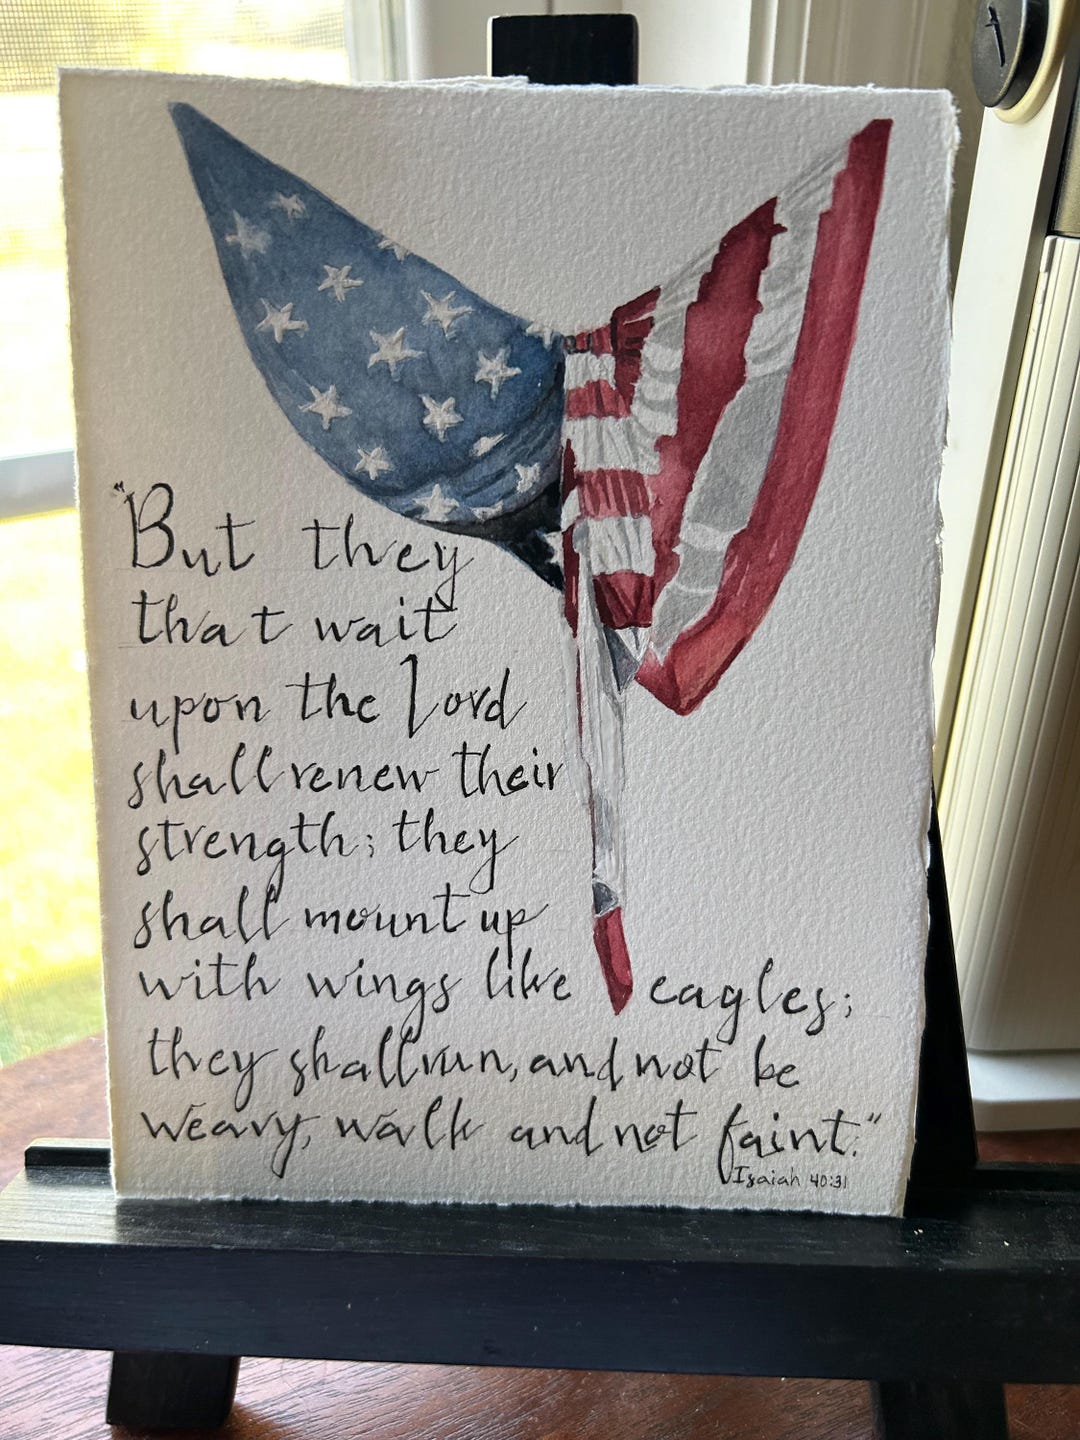 "But they
that wait
upon the Lord
shall renew their
strength; they
shall mount up
with wings like eagles;
they shall run, and not be
weary, walk and not faint."
Isaiah 40:31